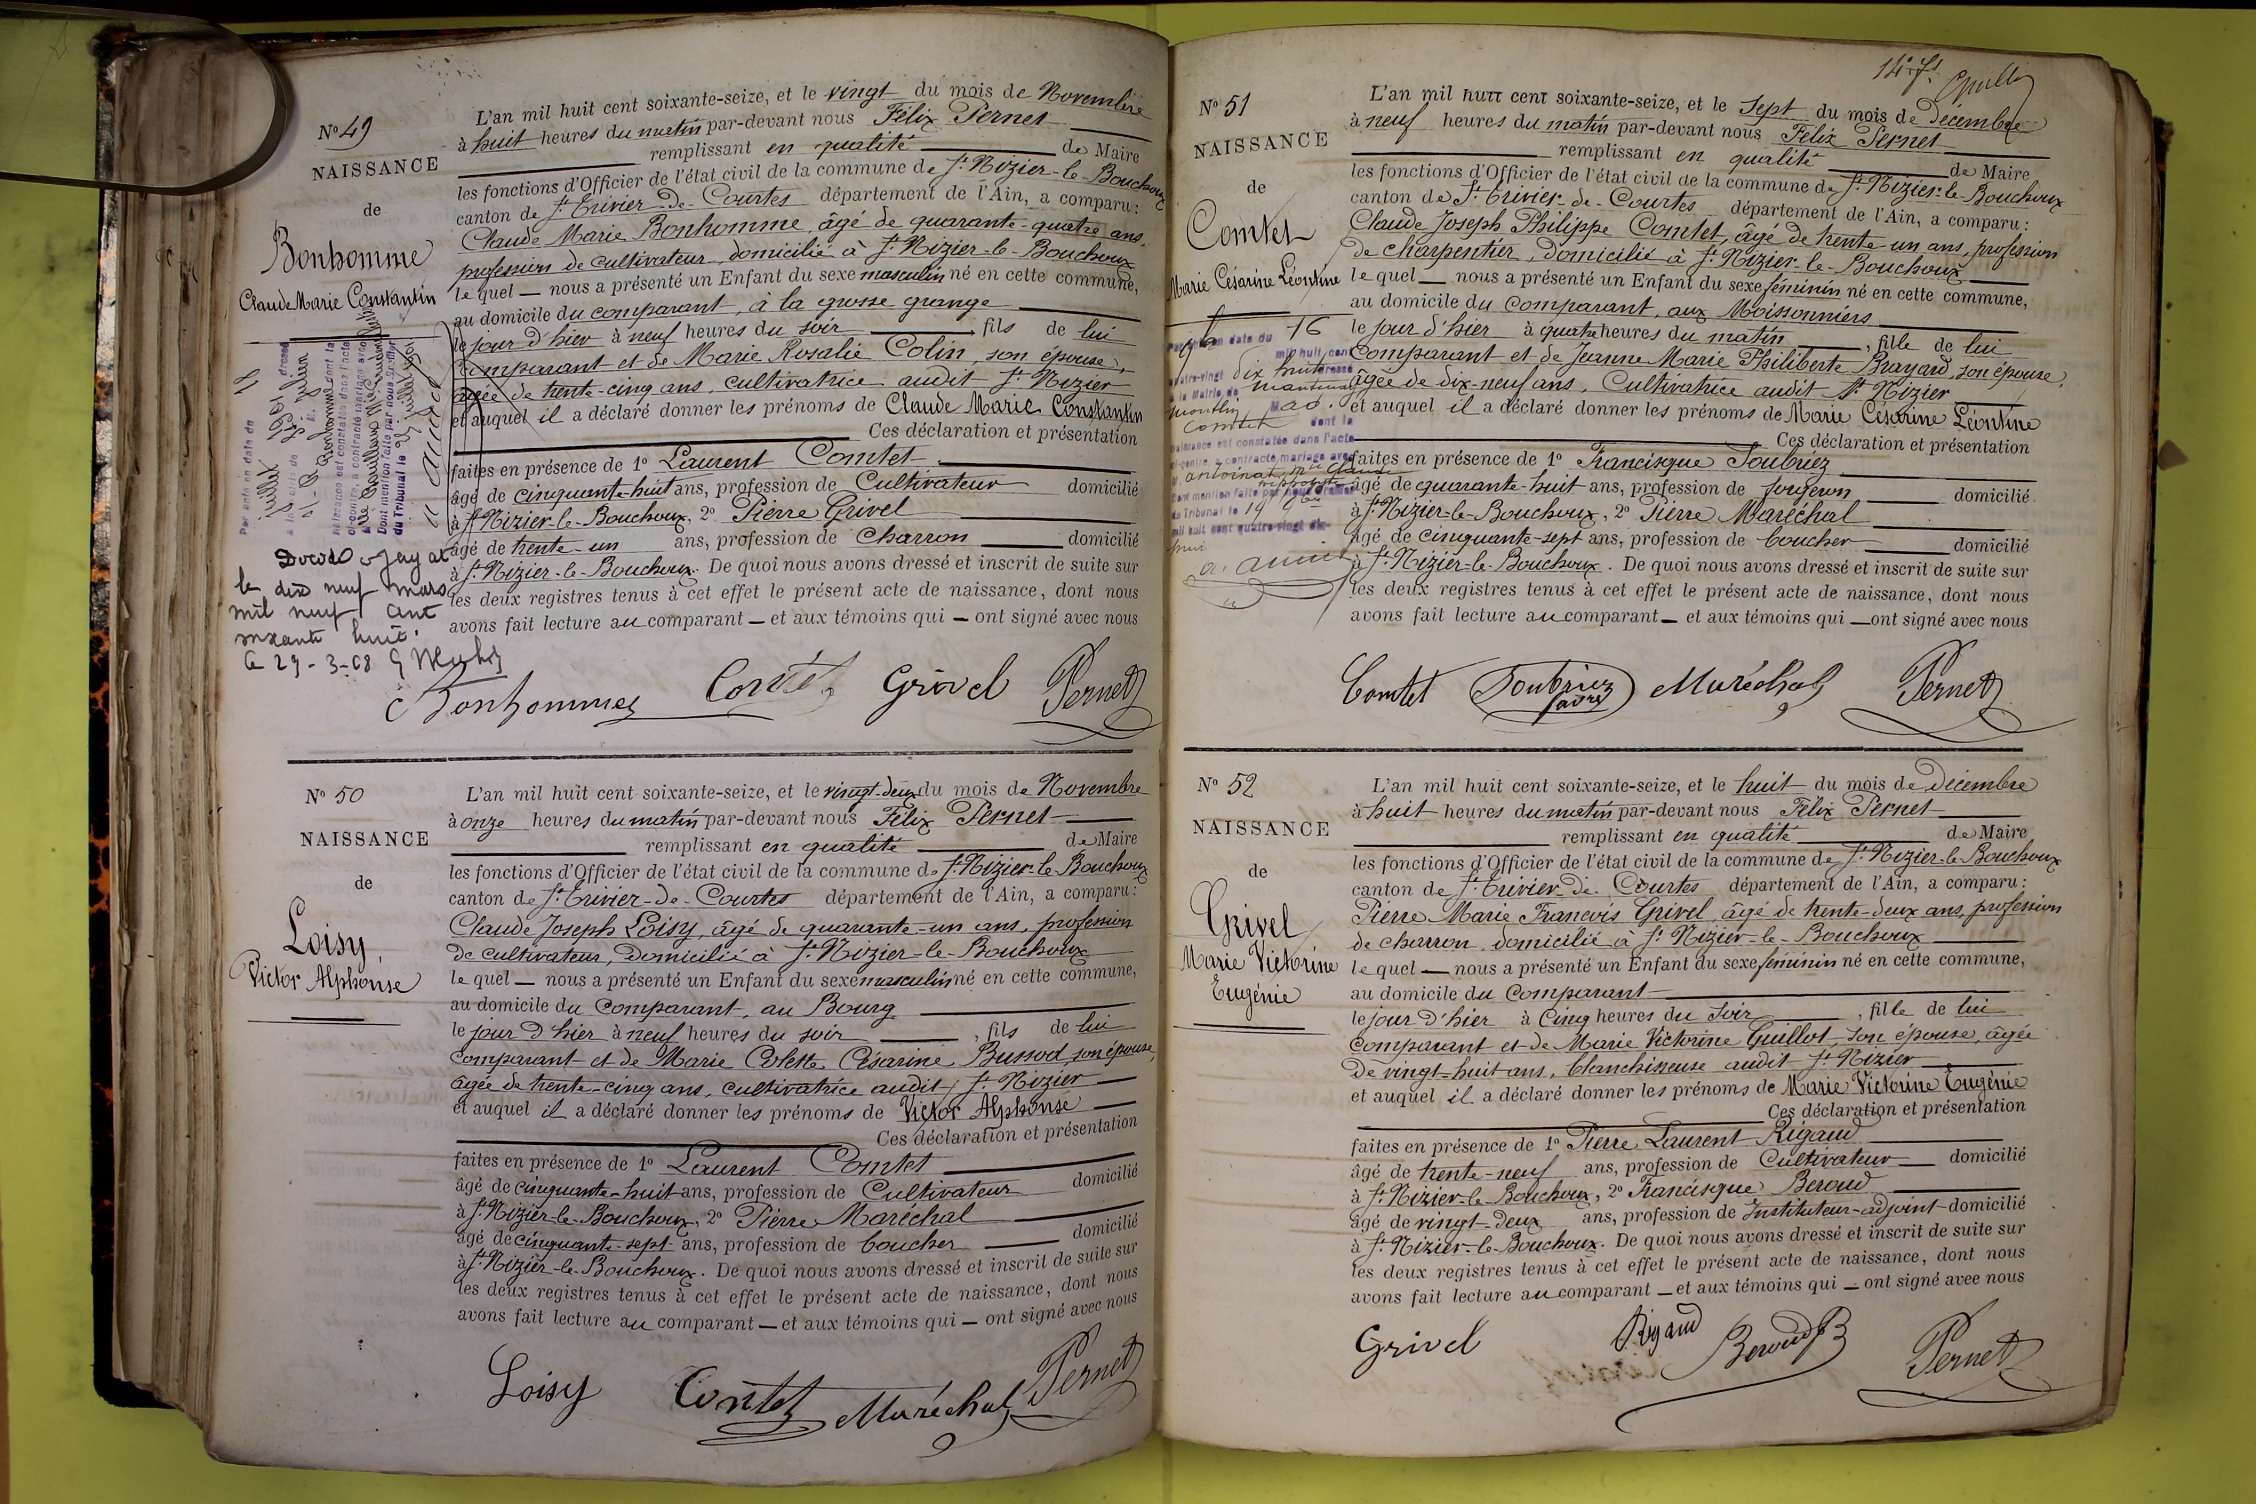 N° 49
NAISSANCE
de
Bonhomme
Claude Marie Constantin
L'an mil huit cent soixante-seize, et le vingt du mois de Novembre
à huit heures du matin par-devant nous Félix Pernet
remplissant en qualité de Maire
les fonctions d'Officier de l'état civil de la commune de St. Nizier-le-Bouchoux
canton de St. Trivier-de-Courtes département de l'Ain, a comparu:
Claude Marie Bonhomme, âgé de quarante-quatre ans,
profession de cultivateur, domicilié à St. Nizier-le-Bouchoux
lequel nous a présenté un Enfant du sexe masculin né en cette commune,
au domicile du comparant, à la grosse grange
le jour d'hier à neuf heures du soir, fils de lui
comparant et de Marie Rosalie Colin, son épouse,
âgée de trente-cinq ans, cultivatrice audit St. Nizier
et auquel il a déclaré donner les prénoms de Claude Marie Constantin
Ces déclaration et présentation
faites en présence de 1° Laurent Comtet
âgé de cinquante-huit ans, profession de Cultivateur domicilié
à St. Nizier-le-Bouchoux, 2° Pierre Grivel
âgé de trente-un ans, profession de Charron domicilié
à St. Nizier-le-Bouchoux. De quoi nous avons dressé et inscrit de suite sur
les deux registres tenus à cet effet le présent acte de naissance, dont nous
avons fait lecture au comparant et aux témoins qui ont signé avec nous
Par acte en date du 18
juillet 1901 dressé
dont la
naissance est constatée dans l'acte
ci-contre, a contracté mariage avec
Dont mention faite par nous Greffier
du Tribunal le 23 juillet 1901
le dix neuf mars
mil neuf cent
soixante huit.
Le 29-3-68
Bonhomme Comtet Grivel Pernet
N° 50
NAISSANCE
de
Loisy,
Victor Alphonse
L'an mil huit cent soixante-seize, et le vingt-deux du mois de Novembre
à onze heures du matin par-devant nous Félix Pernet
remplissant en qualité de Maire
les fonctions d'Officier de l'état civil de la commune de St. Nizier-le-Bouchoux
canton de St. Trivier-de-Courtes département de l'Ain, a comparu:
Claude Joseph Loisy, âgé de quarante-un ans, profession
de cultivateur, domicilié à St. Nizier-le-Bouchoux
lequel nous a présenté un Enfant du sexe masculin né en cette commune,
au domicile du comparant, au Bourg
le jour d'hier à neuf heures du soir, fils de lui
comparant et de Marie Colette Césarine Bussod son épouse,
âgée de trente-cinq ans, cultivatrice audit St. Nizier
et auquel il a déclaré donner les prénoms de Victor Alphonse
Ces déclaration et présentation
faites en présence de 1° Laurent Comtet
âgé de cinquante-huit ans, profession de Cultivateur domicilié
à St. Nizier-le-Bouchoux, 2° Pierre Maréchal
âgé de cinquante-sept ans, profession de boucher domicilié
à St. Nizier-le-Bouchoux. De quoi nous avons dressé et inscrit de suite sur
les deux registres tenus à cet effet le présent acte de naissance, dont nous
avons fait lecture au comparant et aux témoins qui ont signé avec nous
Loisy Comtet Maréchal Pernet
N° 51
NAISSANCE
de
Comtet
Marie Césarine Léontine
L'an mil huit cent soixante-seize, et le sept du mois de Décembre
à neuf heures du matin par-devant nous Félix Pernet
remplissant en qualité de Maire
les fonctions d'Officier de l'état civil de la commune de St. Nizier-le-Bouchoux
canton de St. Trivier-de-Courtes département de l'Ain, a comparu:
Claude Joseph Philippe Comtet, âgé de trente un ans, profession
de charpentier, domicilié à St. Nizier-le-Bouchoux
lequel nous a présenté un Enfant du sexe féminin né en cette commune,
au domicile du comparant, aux Moissonniers
le jour d'hier à quatre heures du matin, fille de lui
comparant et de Jeanne Marie Philiberte Brayard, son épouse,
âgée de dix-neuf ans, Cultivatrice audit St. Nizier
et auquel il a déclaré donner les prénoms de Marie Césarine Léontine
Ces déclaration et présentation
faites en présence de 1° Francisque Soubriez
âgé de quarante-huit ans, profession de forgeron domicilié
à St. Nizier-le-Bouchoux, 2° Pierre Maréchal
âgé de cinquante-sept ans, profession de boucher domicilié
à St. Nizier-le-Bouchoux. De quoi nous avons dressé et inscrit de suite sur
les deux registres tenus à cet effet le présent acte de naissance, dont nous
avons fait lecture au comparant et aux témoins qui ont signé avec nous
en date du 16
mil huit cent
quatre-vingt dix huit dressé
à la Mairie de
Comtet dont la
naissance est constatée dans l'acte
ci-contre, a contracté mariage avec
Dont mention faite par nous Greffier
du Tribunal le 19
mil huit cent quatre-vingt dix
huit
Comtet Soubriez Maréchal Pernet
N° 52
NAISSANCE
de
Grivel
Marie Victorine
Eugénie
L'an mil huit cent soixante-seize, et le huit du mois de Décembre
à huit heures du matin par-devant nous Félix Pernet
remplissant en qualité de Maire
les fonctions d'Officier de l'état civil de la commune de St. Nizier-le-Bouchoux
canton de St. Trivier-de-Courtes département de l'Ain, a comparu:
Pierre Marie Francois Grivel, âgé de trente-deux ans, profession
de charron, domicilié à St. Nizier-le-Bouchoux
lequel nous a présenté un Enfant du sexe féminin né en cette commune,
au domicile du comparant
le jour d'hier à Cinq heures du soir, fille de lui
comparant et de Marie Victorine Guillot, son épouse, âgée
de vingt-huit ans, blanchisseuse audit St. Nizier
et auquel il a déclaré donner les prénoms de Marie Victorine Eugénie
Ces déclaration et présentation
faites en présence de 1° Pierre Laurent Rigaud
âgé de trente-neuf ans, profession de Cultivateur domicilié
à St. Nizier-le-Bouchoux, 2° Francisque Beroud
âgé de vingt-deux ans, profession de Instituteur-adjoint domicilié
à St. Nizier-le-Bouchoux. De quoi nous avons dressé et inscrit de suite sur
les deux registres tenus à cet effet le présent acte de naissance, dont nous
avons fait lecture au comparant et aux témoins qui ont signé avec nous
Grivel Rigaud Beroud Pernet